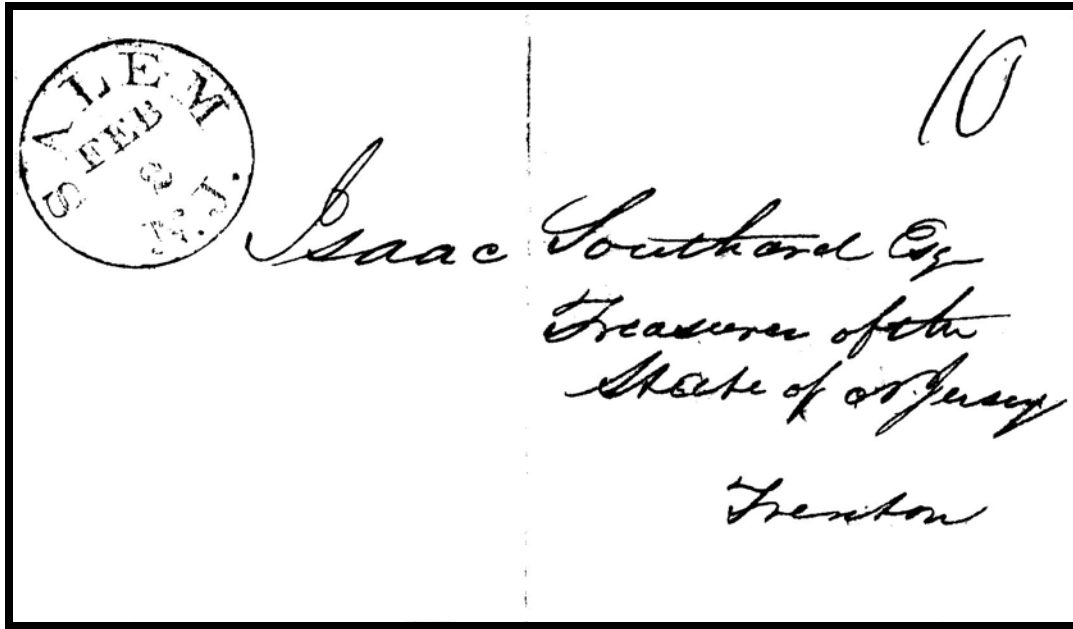 SALEM
FEB
2
N.J.
10
Isaac Southard Esq
Treasurer of the
State of N. Jersey
Trenton